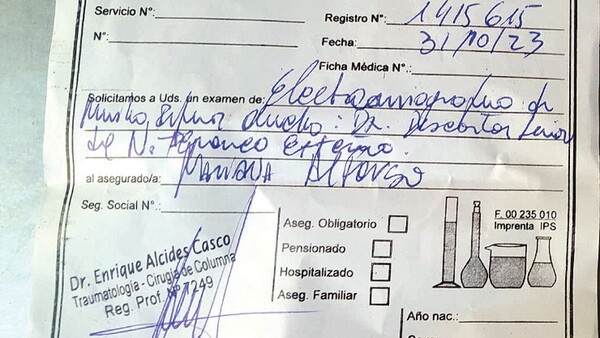 Servicio N°:
Registro N°: 1415615
N°:
Fecha: 31/10/23
Ficha Médica N°.:
Solicitamos a Uds. un examen de: Electromiografia de
Dx. Descartar lesión
de N.
al asegurado/a: Mariana Alfonso
Seg. Social N°.:
Aseg. Obligatorio
Pensionado
Hospitalizado
Aseg. Familiar
F. 00 235 010
Imprenta IPS
Dr. Enrique Alcides Casco
Traumatología - Cirugía de Columna
Reg. Prof. N° 7249
Año nac.: